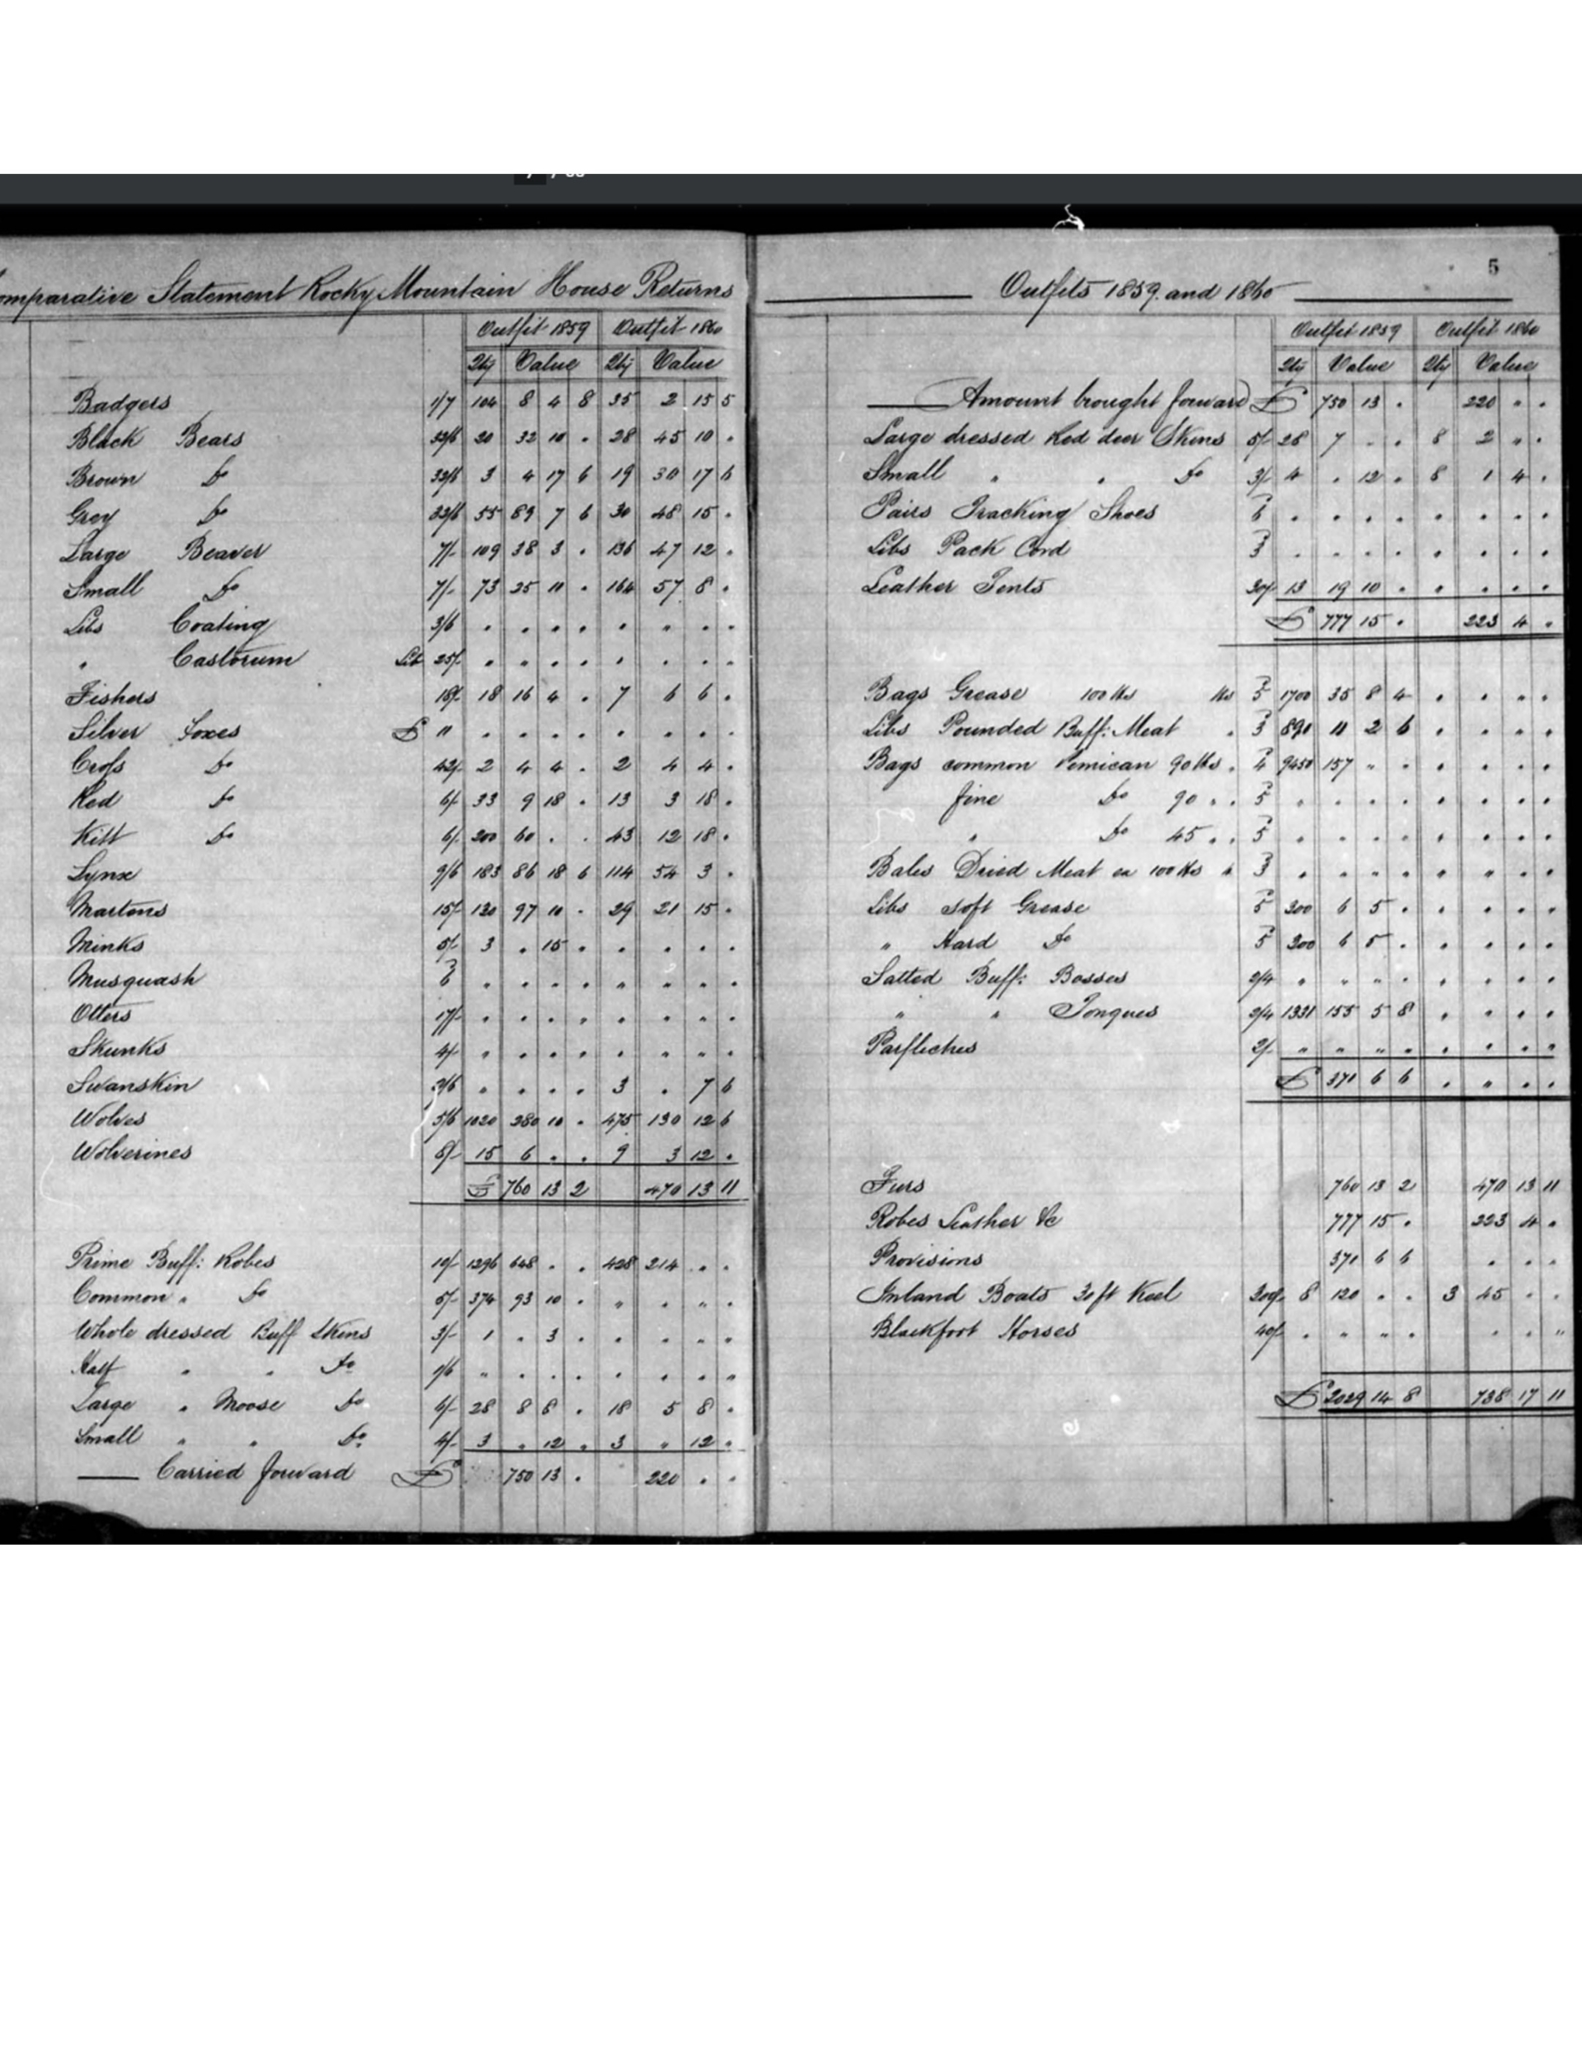 Comparative Statement Rocky Mountain House Returns
Outfit 1859 Outfit 1860
Qty Value Qty Value
Badgers 1/7 104 8 4 8 35 2 15 5
Black Bears 32/6 20 32 10 . 28 45 10 .
Brown Do 32/6 3 4 17 6 19 30 17 6
Grey Do 32/6 55 89 7 6 30 48 15 .
Large Beaver 7/- 109 38 3 . 136 47 12 .
Small Do 7/- 73 25 11 . 164 57 8 .
Libs Coating 3/6 . . . . . . . .
" Castorum Lib 25/- " " . . . . . .
Fishers 18/- 18 16 4 . 7 6 6 .
Silver Foxes £ 11 . . . . . . . .
Cross Do 42/- 2 4 4 . 2 4 4 .
Red Do 6/- 33 9 18 . 13 3 18 .
Kitt Do 6/- 200 60 . . 43 12 18 .
Lynx 9/6 183 86 18 6 114 54 3 .
Martens 15/- 130 97 10 . 29 21 15 .
Minks 5/- 3 . 15 . . . . .
Musquash 6 " . . . " " . .
Otters 17/- . . . . . . . .
Skunks 4/- " . . . . . " .
Swanskin 2/6 " . . . 3 . 7 6
Wolves 5/6 1020 280 10 . 475 130 12 6
Wolverines 8/- 15 6 . . 9 3 12 .
£ 760 13 2 470 13 11
Prime Buff: Robes 10/- 1296 648 . . 428 214 . .
Common " Do 5/- 374 93 10 . " . " .
Whole dressed Buff Skins 3/- 1 . 3 . . . . .
Half " " Do 1/6 " . . . . . . "
Large " Moose Do 6/- 28 8 8 . 18 5 8 .
Small " " Do 4/- 3 . 12 . 3 " 12 .
Carried forward £ 750 13 . 220 . .
5
Outfits 1859 and 1860
Outfit 1859 Outfit 1860
Qty Value Qty Value
Amount brought forward £ 750 13 . 220 " .
Large dressed Red deer Skins 5/- 28 7 . . 8 2 " .
Small " " Do 3/- 4 . 12 . 8 1 4 .
Pairs Tracking Shoes 6 . . . . . . . .
Libs Pack Cord 3 . . . . . . . .
Leather Tents 30/- 13 19 10 . . . . .
£ 777 15 . 223 4 .
Bags Grease 100 lbs lbs 5 1700 35 8 4 . . . .
Libs Pounded Buff: Meat " 3 890 11 2 6 . . . .
Bags common Pemican 90 lbs " 4 9450 157 " . . . . .
fine Do 90 " " 5 . . . . . . . .
" Do 45 " " 5 . . . . . . . .
Bales Dried Meat ea 100 lbs " 3 . . " . . " . .
Libs soft Grease 5 300 6 5 . . . . .
" Hard Do 5 300 6 5 . . . . .
Salted Buff: Bosses 2/4 . " . . . . . .
" " Tongues 2/4 1331 155 5 8 . . . .
Parfleches 2/- " " " . . . . .
£ 370 6 6 . " . .
Furs 760 13 2 470 13 11
Robes Leather &c 777 15 . 223 4 .
Provisions 370 6 6 . . .
Inland Boats 30 ft Keel 300/- 8 120 . . 3 45 . .
Blackfoot Horses 40/- . " " . . . "
£ 2029 14 8 738 17 11